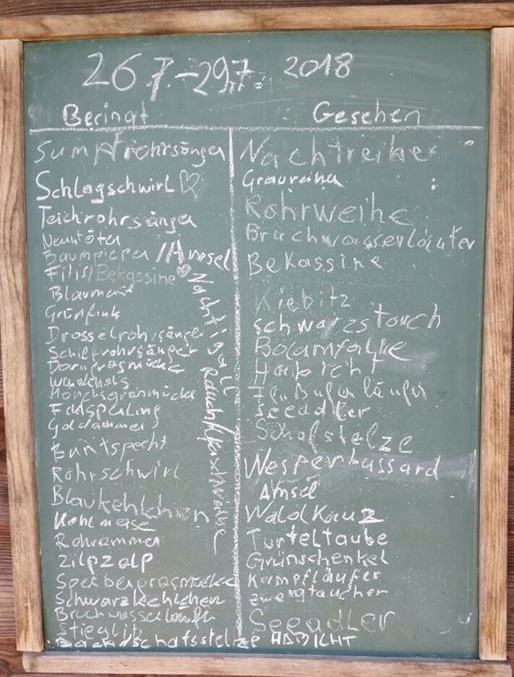 26.7.-29.7. 2018
Beringt
Sumpfrohrsänger
Schlagschwirl ♡
Teichrohrsänger
Neuntöter
Baumpieper // Amsel
Fitis/Bekassine ♡
Blaumeise
Grünfink
Drosselrohrsänger
Schilfrohrsänger
Dorngrasmücke
Wendehals
Mönchsgrasmücke
Feldsperling
Goldammer
Buntspecht
Rohrschwirl
Blaukehlchen
Kohlmeise
Rohrammer
Zilpzalp
Sperbergrasmücke
Schwarzkehlchen
Bruchwasserläufer
Stieglitz
Bachschafsstelze
Nachtigall
Gesehen
Nachtreiher
Graureiher
Rohrweihe
Bruchwasserläufer
Bekassine
Kiebitz
Schwarzstorch
Baumfalke
Habicht
Flußuferläufer
Seeadler
Schafstelze
Wespenbussard
Amsel
Waldkauz
Turteltaube
Grünschenkel
Kampfläufer
Zwergtaucher
Seeadler
HABICHT